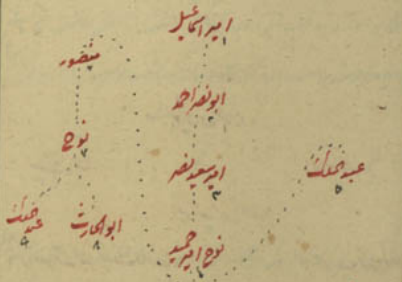 امیر اسماعیل
۱
منصور
ابونصر احمد
۲
نوح
۷
امیر سعید نصر
۳
عبدالملك
۵
عبدالملك
۹
ابوالحارث
۸
نوح امیر حمید